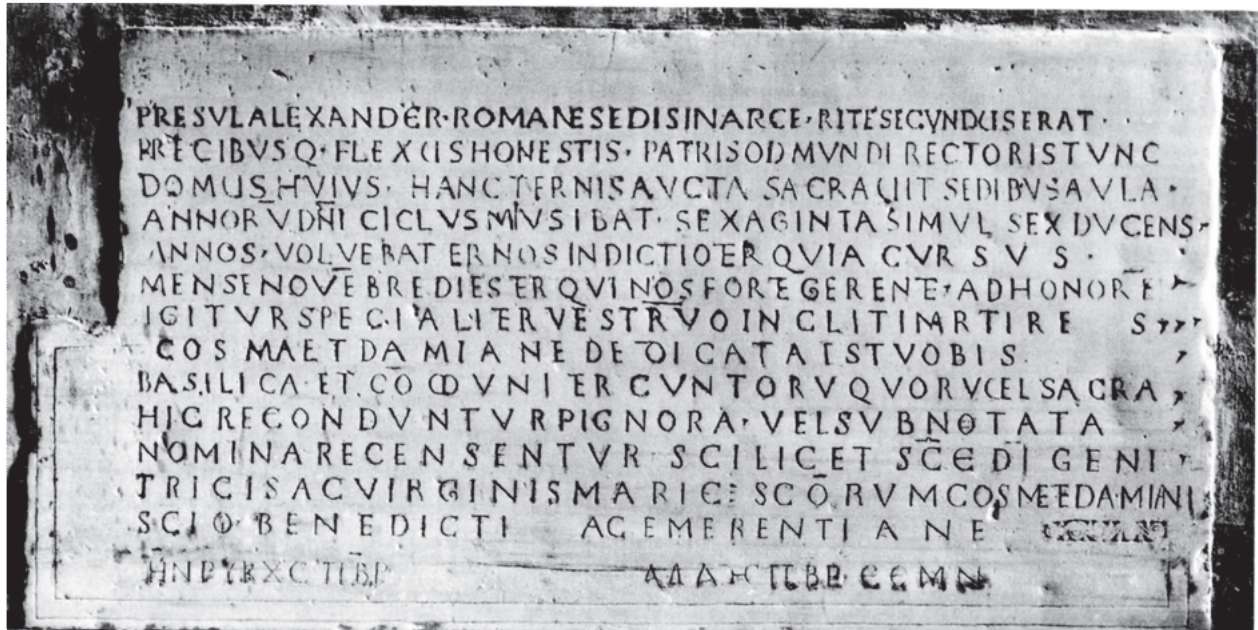 PRESVLALEXANDER·ROMANESEDISINARCE·RITESECVNDVSERAT·
PRECIBVSQ·FLEXVSHONESTIS·PATRISQDMVNDIRECTORISTVNC
DOMUSHVIVS·HANCTERNISAVCTASACRAVITSEDIBVSAVLA·
ANNORVDNICICLVSMIUSIBAT·SEXAGINTASIMVLSEXDVCENS
ANNOS·VOLVERATERNOSINDICTIOTERQVIACVRSVS·
MENSENOVEBREDIESTERQVINOSFOREGERENTE·ADHONORE
IGITVRSPECIALITERVESTRVOINCLITIMARTIRES
COSMAETDAMIANEDEDICATAISTVOBIS
BASILICA·ETCOMUNITERCVNTORVQVORVVELSACRA
HICRECONDVNTVRPIGNORA·VELSVBNOTATA
NOMINARECENSENTVR·SCILICETSCEDIGENI
TRICISACVIRGINISMARIE SCORVMCOSMEETDAMIANI
SCIQ·BENEDICTI ACEMERENTIANE